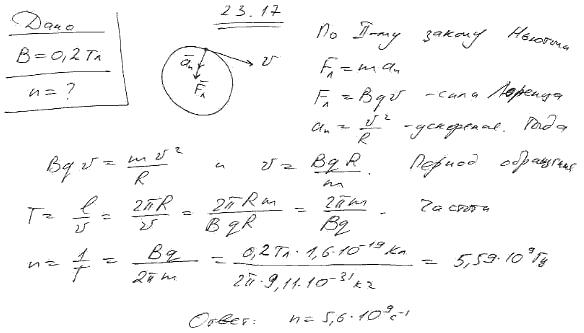 23.17
Дано
B = 0,2 Тл
n = ?
a̅ₙ
F̅л
v
По II-му закону Ньютона
Fл = m aₙ
Fл = Bqv - сила Лоренца
aₙ = v²/R - ускорение. Тогда
Bqv = mv²/R и v = BqR/m. Период обращения
T = l/v = 2πR/v = 2πRm/BqR = 2πm/Bq. Частота
n = 1/T = Bq/2πm = 0,2Тл·1,6·10⁻¹⁹Кл/2π·9,11·10⁻³¹кг = 5,59·10⁹Гц
Ответ: n = 5,6·10⁹с⁻¹